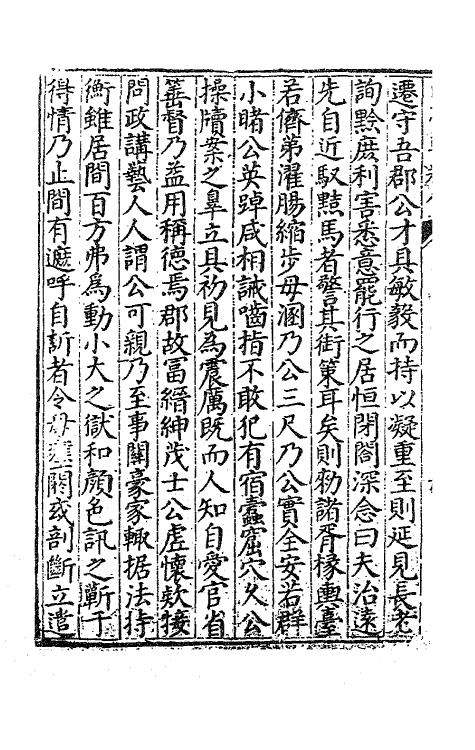 遷守吾郡公才具敏毅而持以凝重至則延見長老
詢黔庶利害悉意罷行之居恒閉閤深念曰夫治遠
先自近馭黠馬者警其銜策耳矣則勑諸胥椽輿臺
若儕弟濯腸縮步毋溷乃公三尺乃公實全安若群
小睹公英踔咸相誡嚙指不敢犯有宿蠹窟穴久公
操牘案之辠立具初見為震厲既而人知自愛官省
箠督乃益用稱德焉郡故畐縉紳茂士公虛懷欵接
問政講藝人人謂公可親乃至事關豪家輙据法持
衡雖居間百方弗為動小大之獄和顏色訊之蘄于
得情乃止間有遮呼自訢者令毋壅閼或剖斷立遣